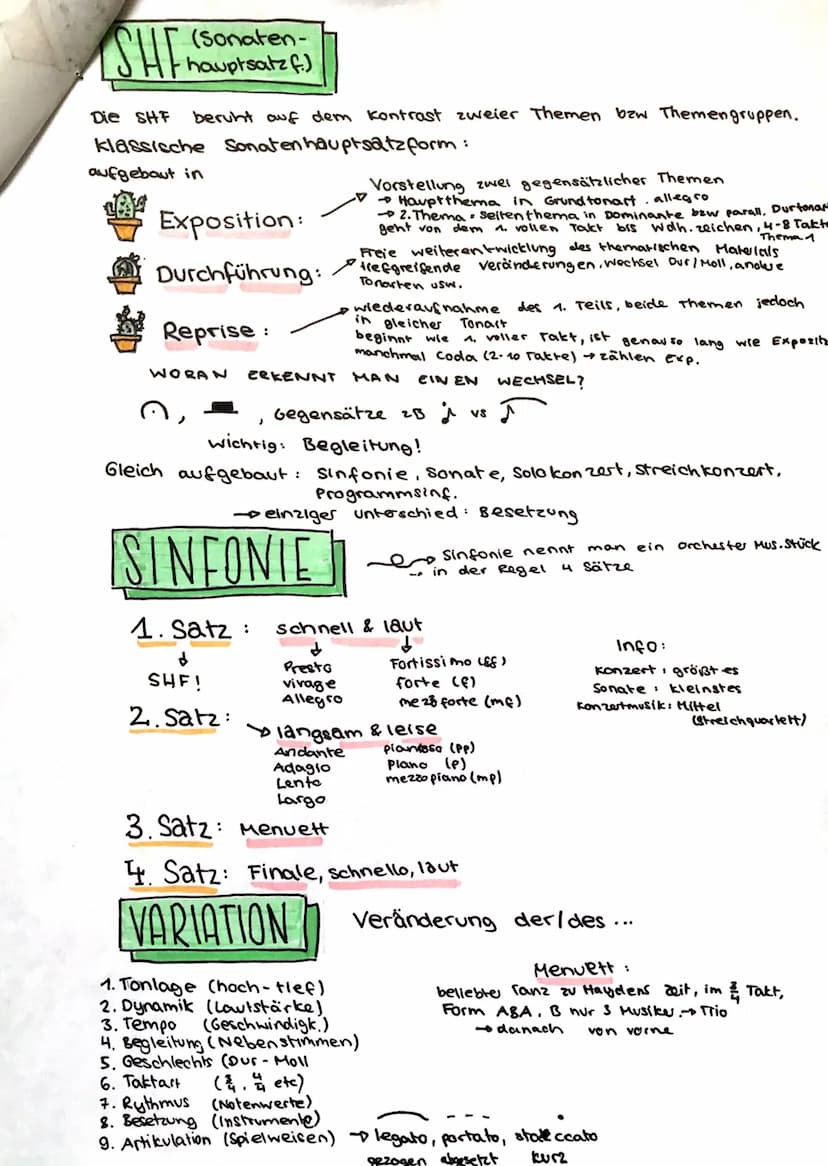 SHF (Sonaten-
hauptsatzf.)
Die SHF beruht auf dem Kontrast zweier Themen bzw Themengruppen.
klassische Sonatenhauptsatzform:
aufgebaut in
Exposition:
Vorstellung zwei gegensätzlicher Themen
→ Hauptthema in Grundtonart. allegro
→ 2. Thema = Seitenthema in Dominante bzw parall. Durtonar
geht von dem 1. vollen Takt bis Wdh. zeichen, 4-8 Takt
Thema 1
Durchführung:
Freie weiterentwicklung des thematischen Materials
tiefgreifende Veränderungen, Wechsel Dur/Moll, andere
Tonarten usw.
Reprise:
wiederaufnahme des 1. Teils, beide Themen jedoch
in gleicher Tonart
beginnt wie 1. voller Takt, ist genauso lang wie Expositi
manchmal Coda (2-10 Takte) → zählen Exp.
WORAN ERKENNT MAN EINEN WECHSEL?
, , Gegensätze zB ♪ vs ♪
wichtig: Begleitung!
Gleich aufgebaut: Sinfonie, Sonate, Solokonzert, Streichkonzert,
Programmsinf.
→ einziger unterschied: Besetzung
SINFONIE
→ Sinfonie nennt man ein orchester Mus. Stück
→ in der Regel 4 Sätze
1. Satz: schnell & laut
↓ ↓ ↓
SHF!
Presto
virage
Allegro
Fortissimo (ff)
forte (f)
mezzoforte (mf)
Info:
Konzert: größtes
Sonate: kleinstes
Konzertmusik: Mittel
(Streichquartett)
2. Satz:
→ langsam & leise
Andante
Adagio
Lento
Largo
(pp)
piano (p)
mezzopiano (mp)
3. Satz: Menuett
4. Satz: Finale, schnello, laut
VARIATION Veränderung der/des ...
1. Tonlage (hoch-tief)
2. Dynamik (Lautstärke)
3. Tempo (Geschwindigk.)
4. Begleitung (Nebenstimmen)
5. Geschlechts (Dur-Moll
6. Taktart (3/4, 4/4 etc)
7. Rythmus (Notenwerte)
8. Besetzung (Instrumente)
9. Artikulation (Spielweisen) → legato, portato, staccato
gezogen abgesetzt kurz
Menuett:
beliebter Tanz zu Haydens Zeit, im 3/4 Takt,
Form ABA, B nur 3 Musiker → Trio
→ danach von vorne